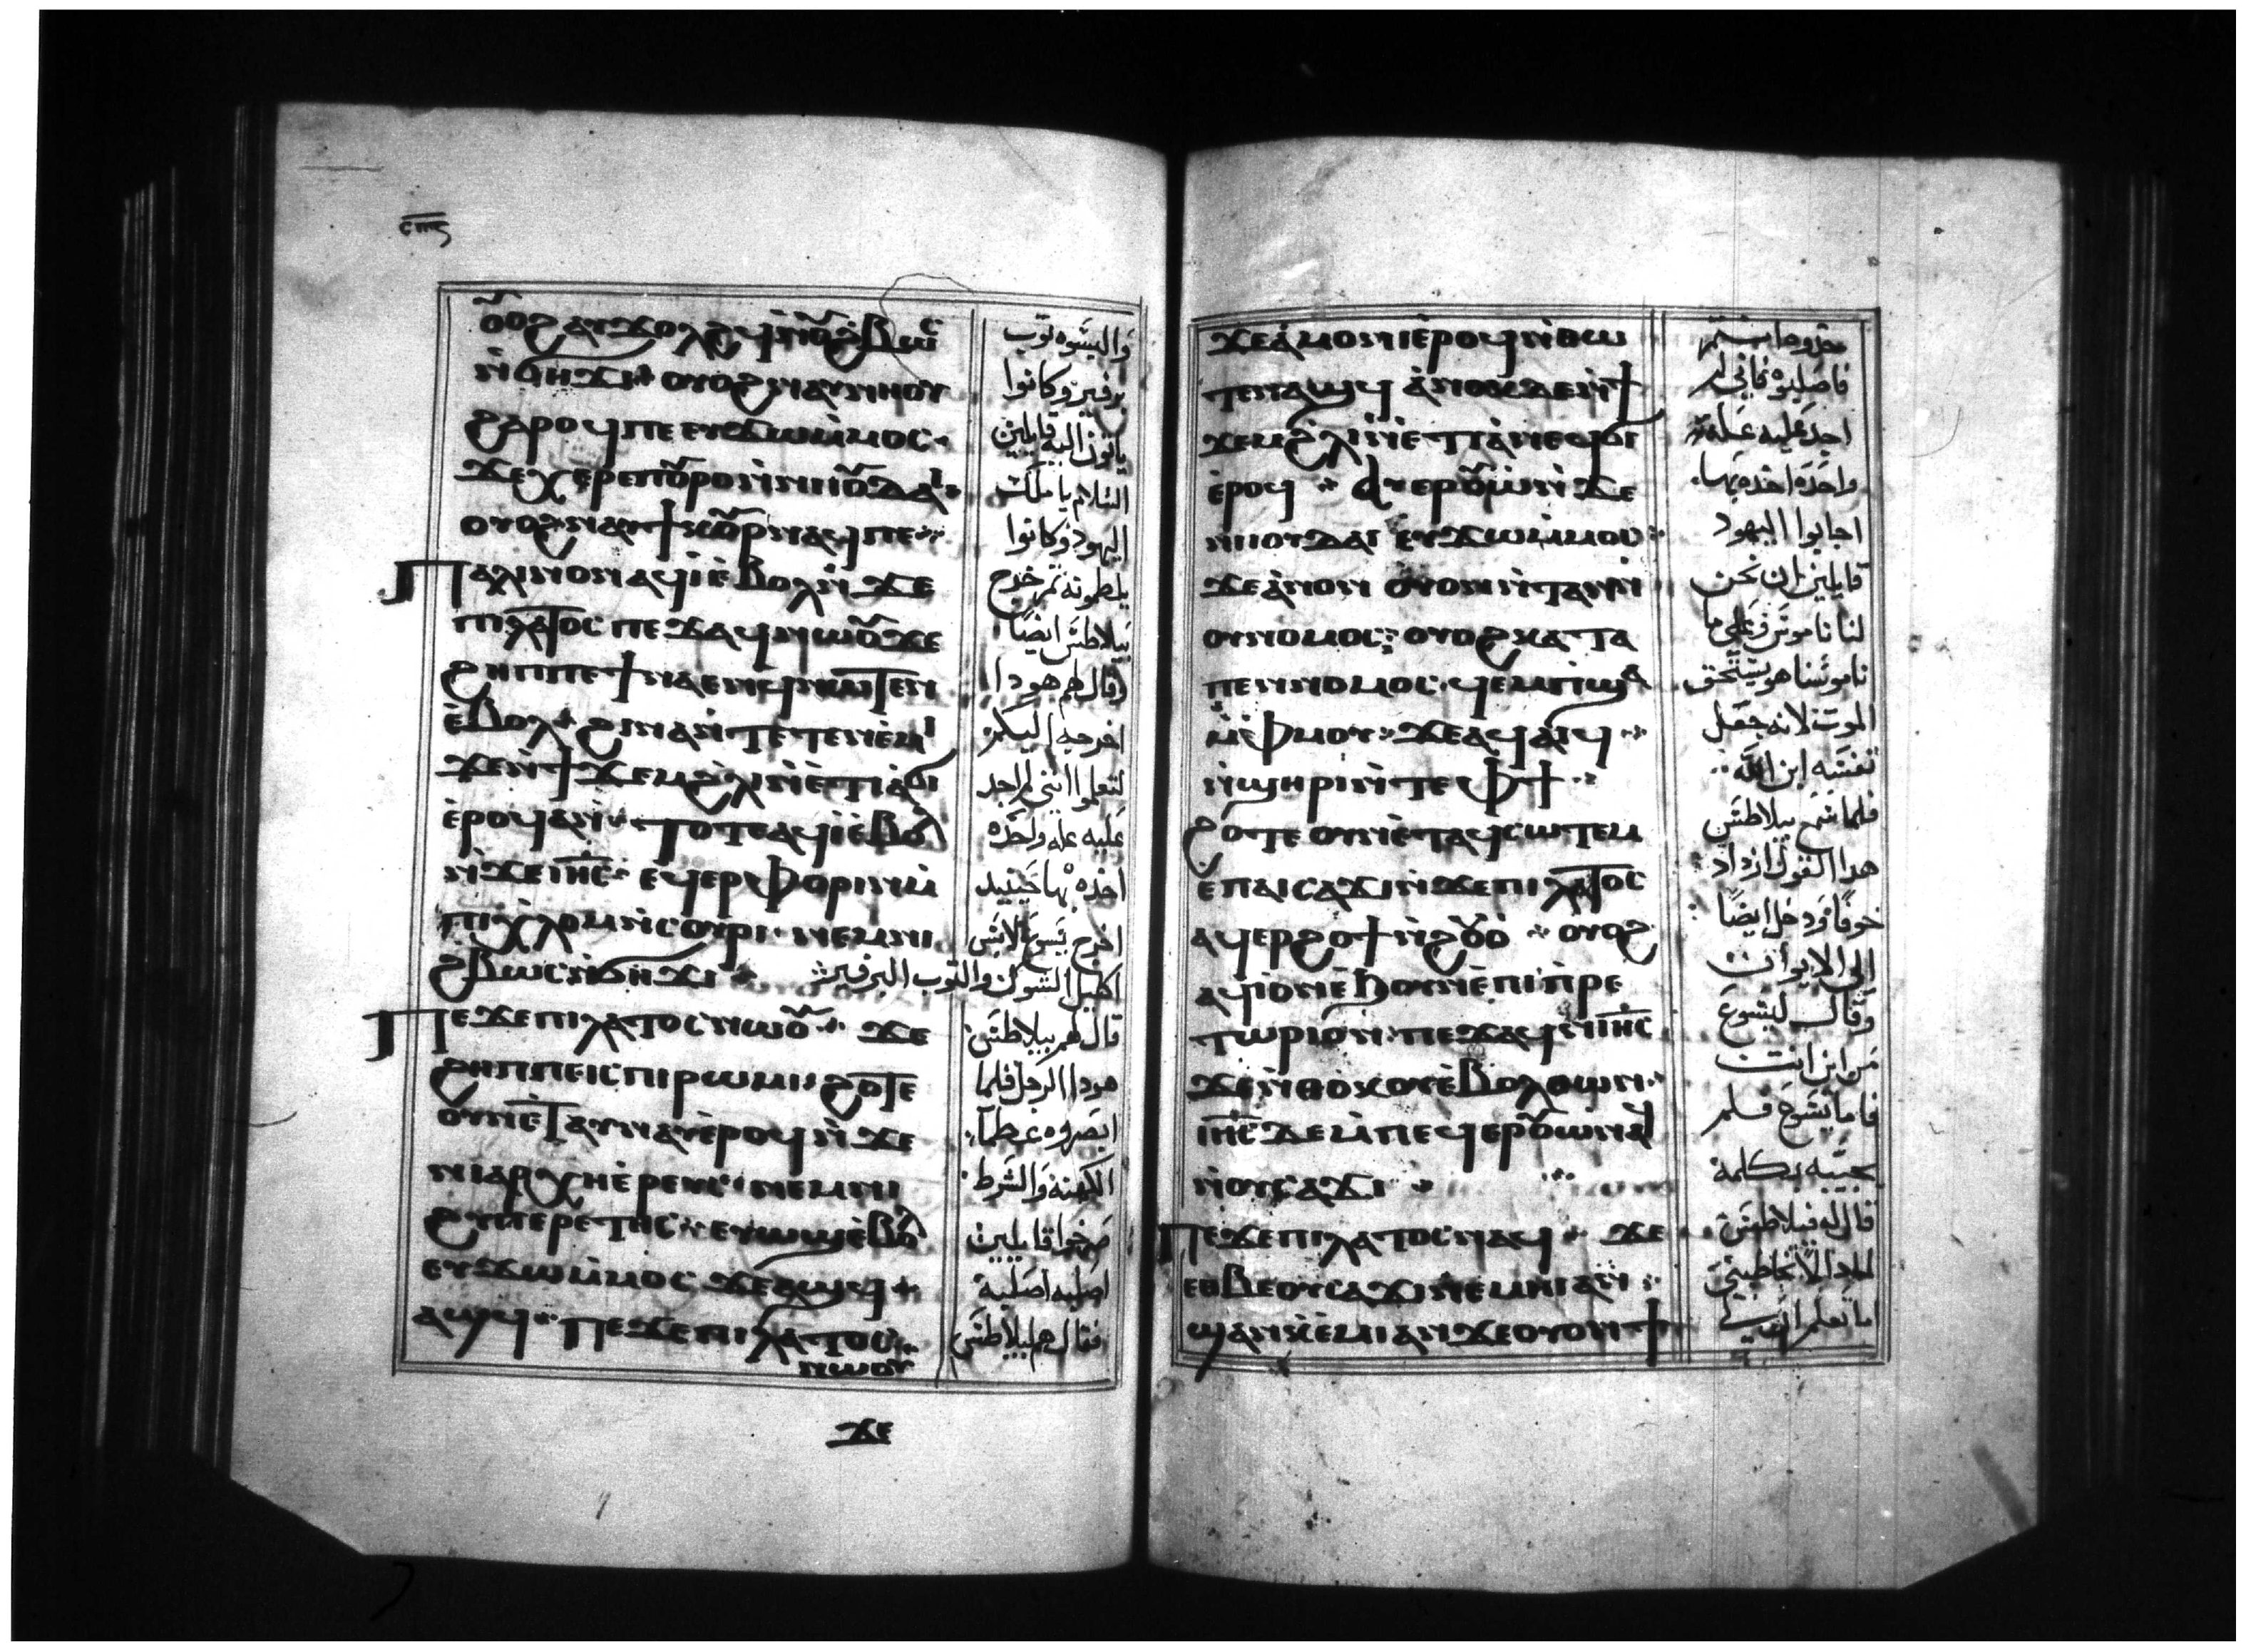 ⲥⲡⲋ
ⲟⲟϩ ⲁⲩϫⲟⲗϩϥ ⲛⲟⲩϩⲃⲱⲥ
ⲛ̀ϭⲏϫⲓ ⲟⲩⲟϩ ⲛⲁⲩⲛⲏⲟⲩ
ϩⲁⲣⲟϥ ⲡⲉ ⲉⲩϫⲱ ⲙ̀ⲙⲟⲥ
ϫⲉ ⲭⲉⲣⲉ ⲡⲟⲩⲣⲟ ⲛ̀ⲛⲓⲓⲟⲩⲇⲁⲓ
ⲟⲩⲟϩ ⲛⲁⲩϯⲕⲟⲩⲣ ⲛⲁϥ ⲡⲉ
Ⲡⲁⲗⲓⲛ ⲟⲛ ⲁϥⲓ̀ ⲉ̀ⲃⲟⲗ ⲛ̀ϫⲉ
ⲡⲓⲗⲁⲧⲟⲥ ⲡⲉϫⲁϥ ⲛⲱⲟⲩ ϫⲉ
ϩⲏⲡⲡⲉ ϯⲛⲁⲉⲛϥ ⲛⲱⲧⲉⲛ
ⲉ̀ⲃⲟⲗ ϩⲓⲛⲁ ⲛ̀ⲧⲉⲧⲉⲛⲉ̀ⲙⲓ
ϫⲉ ⲛ̀ϯϫⲉⲙ ϩ̀ⲗⲓ ⲛ̀ⲉ̀ⲧⲓⲁ̀ ϭⲓ
ⲉ̀ⲣⲟϥ ⲁⲛ ⲧⲟⲧⲉ ⲁϥⲓ̀ ⲉ̀ⲃⲟⲗ
ⲛ̀ϫⲉ ⲓⲏⲥ ⲉϥⲉⲣⲫⲟⲣⲓⲛ ⲙ̀
ⲡⲓⲭ̀ⲗⲟⲙ ⲛ̀ⲥⲟⲩⲣⲓ ⲛⲉⲙ ⲛⲓ
ϩⲃⲱⲥ ⲛ̀ϭⲏϫⲓ
Ⲡⲉϫⲉ ⲡⲓⲗⲁⲧⲟⲥ ⲛⲱⲟⲩ ϫⲉ
ϩⲏⲡⲡⲉ ⲓⲥ ⲡⲓⲣⲱⲙⲓ ϩⲟⲧⲉ
ⲟⲩⲛ ⲉ̀ⲧⲁⲩⲛⲁⲩ ⲉ̀ⲣⲟϥ ⲛ̀ϫⲉ
ⲛⲓⲁⲣⲭⲏⲉ̀ⲣⲉⲩⲥ ⲛⲉⲙ ⲛⲓ
ϩⲩⲡⲉⲣⲉⲧⲏⲥ ⲉⲩⲱϣ ⲉ̀ⲃⲟⲗ
ⲉⲩϫⲱ ⲙ̀ⲙⲟⲥ ϫⲉ ⲁϣϥ
ⲁϣϥ ⲡⲉϫⲉ ⲡⲓⲗⲁⲧⲟⲥ
ⲛⲱⲟⲩ
ϫⲉ
والبسوه توب
برفير وكانوا
ياتون اليه قايلين
السلام يا ملك
اليهود وكانوا
يلطمونه ثم خرج
بيلاطس ايضا
وقال لهم هودا
اخرجه اليكم
لتعلموا انني لم اجد
عليه عله واحده
اخذه بها حينيد
اخرج يسوع لابس
اكليل الشوك والتوب البرفير
قال لهم بيلاطس
هودا الرجل فلما
ابصروه عظما
الكهنه والشرط
صرخوا قايلين
اصلبه اصلبه
فقال لهم بيلاطس
ϫⲉ ⲁ̀ⲙⲟⲛⲓ ⲉ̀ⲣⲟϥ ⲛ̀ⲑⲱ
ⲧⲉⲛ ⲁϣϥ ⲁ̀ⲛⲟⲕ ⲇⲉ ⲛ̀ϯ
ϫⲉⲙ ϩ̀ⲗⲓ ⲛ̀ⲉ̀ⲧⲓⲁ̀ ⲛⲉϥϭⲓ
ⲉ̀ⲣⲟϥ ⲁⲩⲉⲣⲟⲩⲱ̀ ⲛ̀ϫⲉ
ⲛⲓⲓⲟⲩⲇⲁⲓ ⲉⲩϫⲱ ⲙ̀ⲙⲟⲥ
ϫⲉ ⲁ̀ⲛⲟⲛ ⲟⲩⲟⲛ ⲛ̀ⲧⲁⲛ ⲛ̀
ⲟⲩⲛⲟⲙⲟⲥ ⲟⲩⲟϩ ⲕⲁⲧⲁ
ⲡⲉⲛⲛⲟⲙⲟⲥ ϥⲉⲙⲡϣⲁ
ⲙ̀ⲫⲙⲟⲩ ϫⲉ ⲁϥⲁⲓϥ
ⲛ̀ϣⲏⲣⲓ ⲛ̀ⲧⲉ ⲫϯ
ϩⲟⲧⲉ ⲟⲩⲛ ⲉ̀ⲧⲁϥⲥⲱⲧⲉⲙ
ⲉ̀ⲡⲁⲓⲥⲁϫⲓ ⲛ̀ϫⲉ ⲡⲓⲗⲁⲧⲟⲥ
ⲁϥⲉⲣϩⲟϯ ⲛ̀ϩⲟⲩⲟ̀ ⲟⲩⲟϩ
ⲁϥⲓ̀ ⲟⲛ ⲉ̀ϧⲟⲩⲛ ⲉ̀ⲡⲓⲡ̀ⲣⲉ
ⲧⲱⲣⲓⲟⲛ ⲡⲉϫⲁϥ ⲛ̀ⲓⲏⲥ
ϫⲉ ⲛ̀ⲑⲟⲕ ⲟⲩⲉ̀ⲃⲟⲗ ⲑⲱⲛ
ⲓⲏⲥ ⲇⲉ ⲙ̀ⲡⲉϥⲉⲣⲟⲩⲱ̀ ⲛⲁϥ
ⲛ̀ⲟⲩⲥⲁϫⲓ
Ⲡⲉϫⲉ ⲡⲓⲗⲁⲧⲟⲥ ⲛⲁϥ ϫⲉ
ⲉⲑⲃⲉⲟⲩ ⲕⲥⲁϫⲓ ⲛⲉⲙⲏⲓ ⲁⲛ
ϣⲁⲛ ⲕ̀ⲉ̀ⲙⲓ ⲁⲛ ϫⲉ ⲟⲩⲟⲛϯ
خذوه انتم
فاصلبوه فاني لم
اجد عليه عله
واحده اخذه بها
اجابوا اليهود
قايلين ان نحن
لنا ناموس وعلى ما
ناموسنا هو يستحق
الموت لانه جعل
نفسه ابن الله
فلما سمع بيلاطس
هدا القول ازداد
خوفا ودخل ايضا
الى الايوان
وقال ليسوع
من اين انت
فاما يسوع فلم
يجيبه بكلمة
قال له بيلاطس
لمادا لا تخاطبني
اما تعلم ان لي